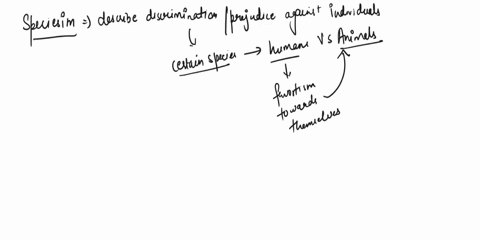 Speciesim => describe discrimination / prejudice against individuals
certain species → humans Vs Animals
favortism
towards
themselves